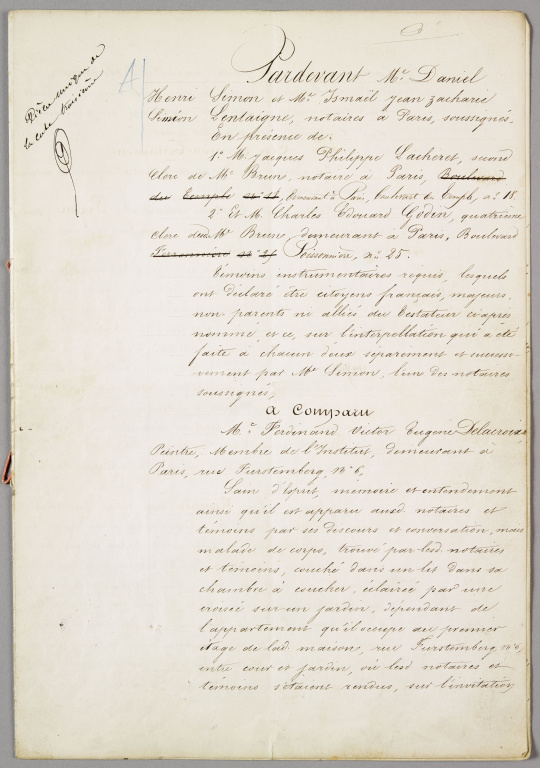 Pièce unique de
la cote troisième
A
Pardevant Me. Daniel
Henri Simon et Me. Ismaël Jean Zacharie
Siméon Lentaigne, notaires à Paris, soussignés.
En présence de:
1o. M. Jacques Philippe Lacheret, second
Clerc de Me Brun, notaire à Paris, Boulevard
du Temple no 14, demeurant à Paris, boulevart du Temple, no 18.
2o Et M. Charles Edouard Godin, quatrième
clerc dud. Me Brun, demeurant à Paris, Boulevard
Poissonnière, no 25.
Témoins instrumentaires requis, lesquels
ont déclaré être citoyens français, majeurs,
non parents ni alliés du Testateur ci après
nommé, et ce, sur l'interpellation qui a été
faite à chacun d'eux séparément et success-
ivement par Me Simon, l'un des notaires
soussignés,
a Comparu
Mr. Ferdinand Victor Eugène Delacroix
Peintre, Membre de l'Institut, demeurant à
Paris, rue Furstemberg, No 6,
Sain d'esprit, mémoire et entendement
ainsi qu'il est apparu auxd. notaires et
témoins par ses discours et conversation, mais
malade de corps, trouvé par lesd. notaires
et témoins, couché dans un lit dans sa
chambre à coucher, éclairée par une
croisée sur un jardin, dépendant de
l'appartement qu'il occupe au premier
étage de lad. maison, rue Furstemberg, No 6,
entre cour et jardin, où lesd. notaires et
témoins s'étaient rendus, sur l'invitation